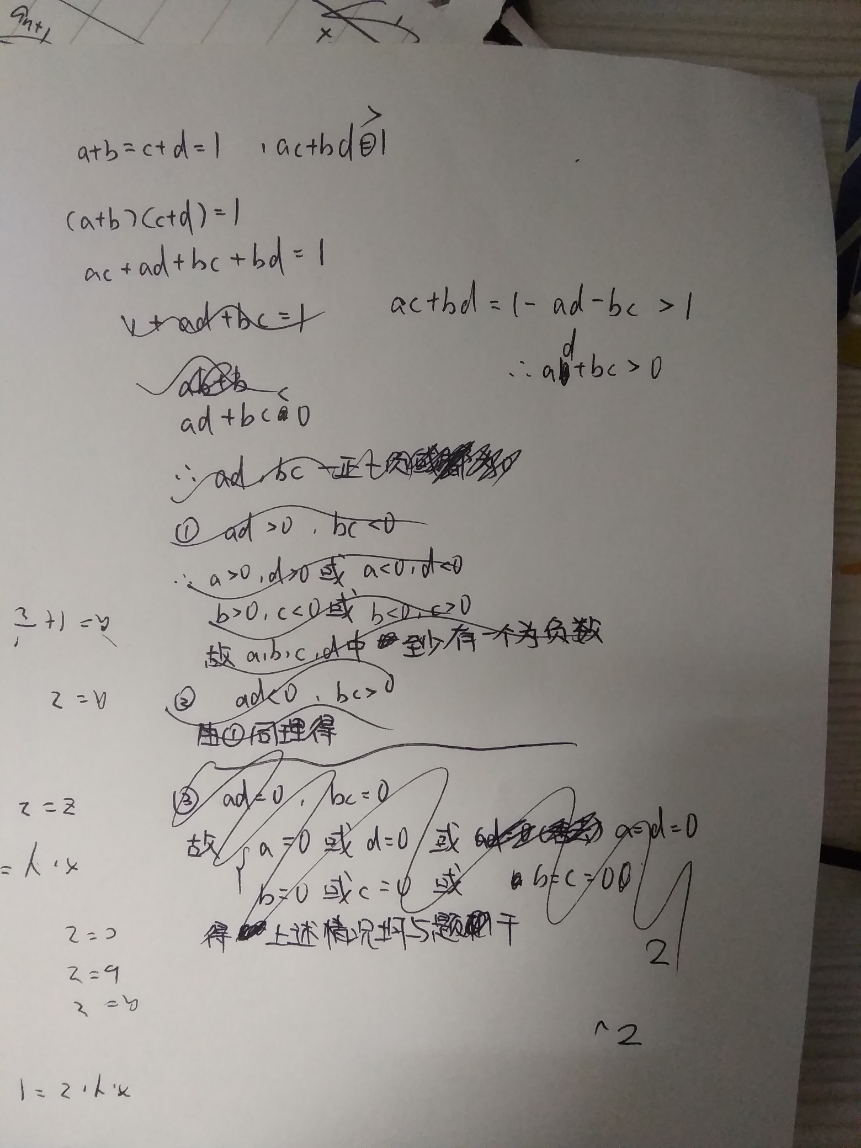 an+1
x
a+b=c+d=1 , ac+bd>1
(a+b)(c+d)=1
ac+ad+bc+bd=1
1+ad+bc=1
ac+bd=1-ad-bc>1
∴ad+bc>0
ab+b
ad+bc<0
∴ad,bc一正一负或
① ad>0,bc<0
∴a>0,d>0或a<0,d<0
b>0,c<0或b<0,c>0
故a,b,c,d中至少有一个为负数
② ad<0,bc>0
由①同理得
③ ad=0,bc=0
故{a=0或d=0或a=d=0
b=0或c=0或b=c=0
得上述情况均与题干
2
^2
a=1+
a=2
z=2
x·y=
c=2
b=2
a=2
x·y·z=1